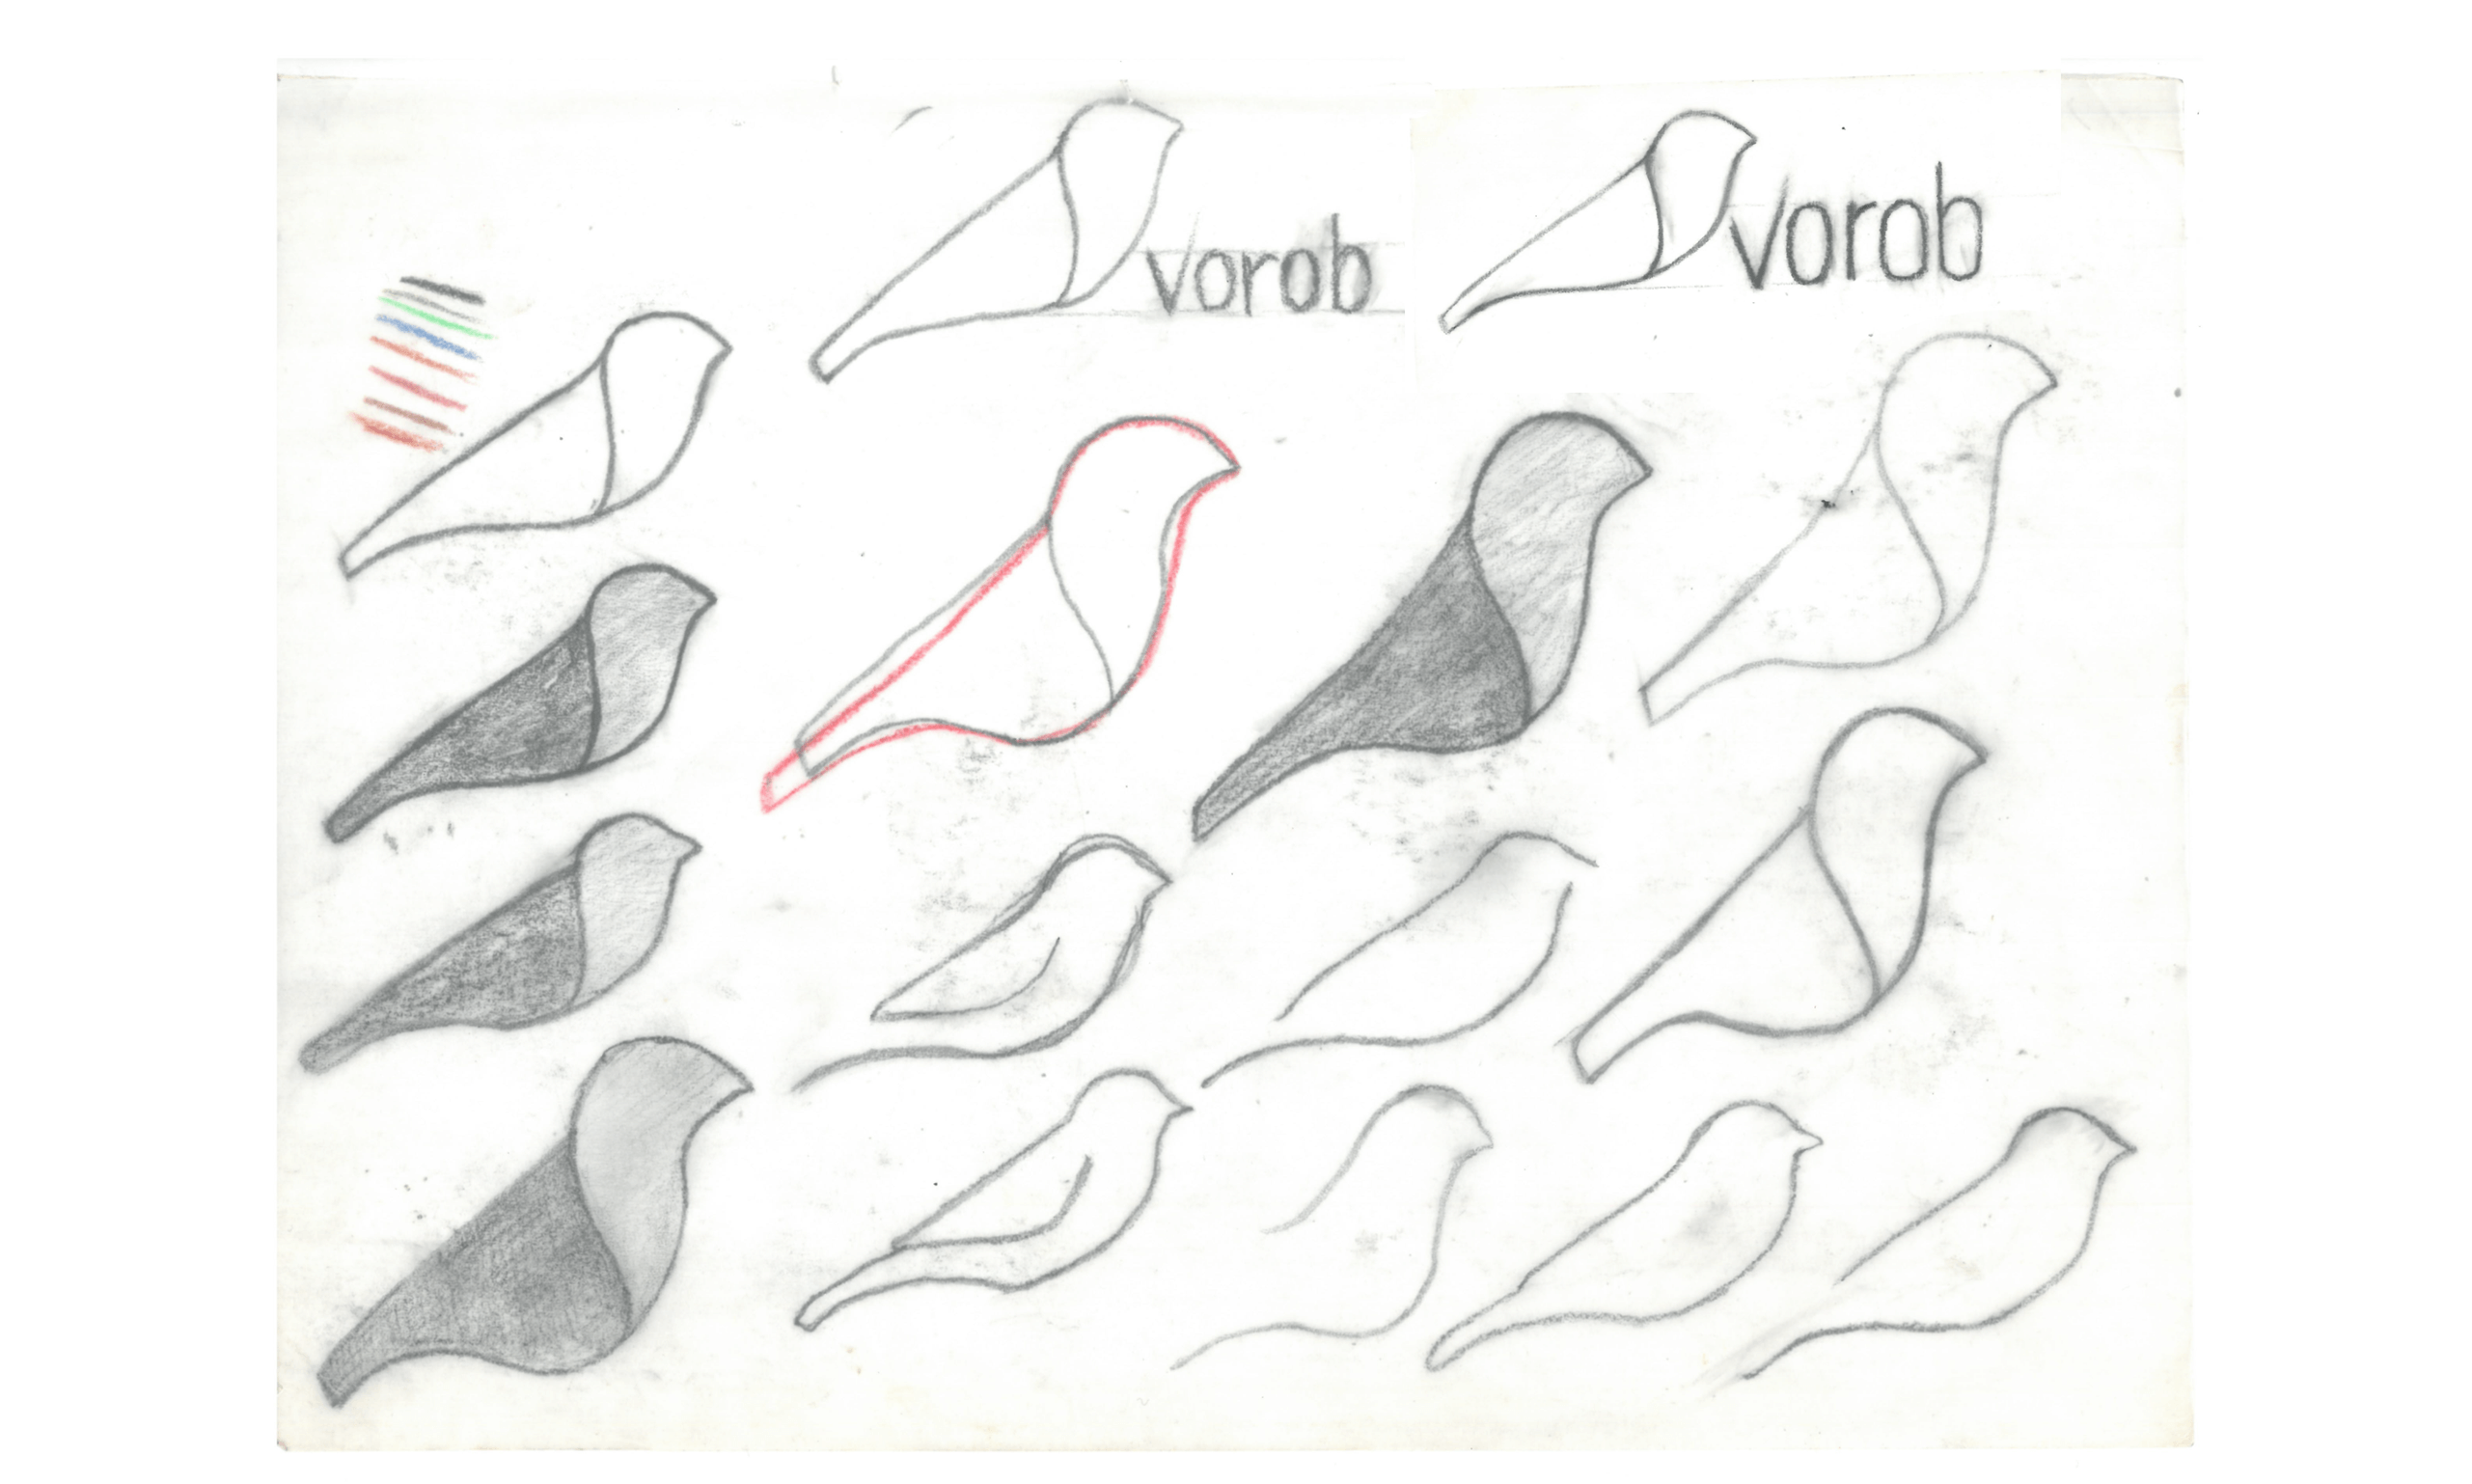 vorob
vorob